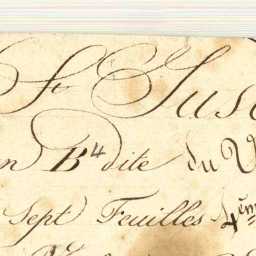 St Jus
n B4 dite du V
Sept Feuilles 4èm